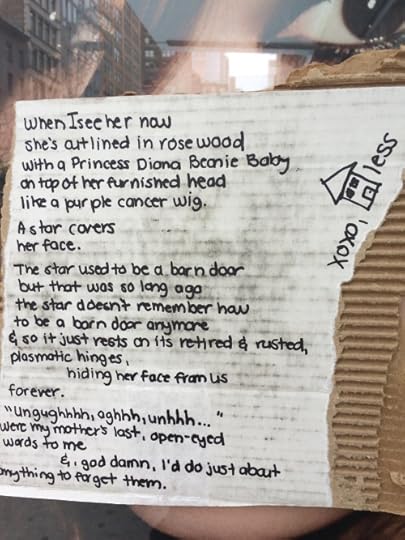 When I see her now
she's outlined in rosewood
with a Princess Diana Beanie Baby
on top of her furnished head
like a purple cancer wig.
A star covers
her face.
The star used to be a barn door
but that was so long ago
the star doesn't remember how
to be a barn door anymore
& so it just rests on its retired & rusted,
plasmatic hinges,
hiding her face from us
forever.
"Ungughhhh, oghhh, unhhh..."
were my mother's last, open-eyed
words to me
&, god damn, I'd do just about
anything to forget them.
xoxo, less